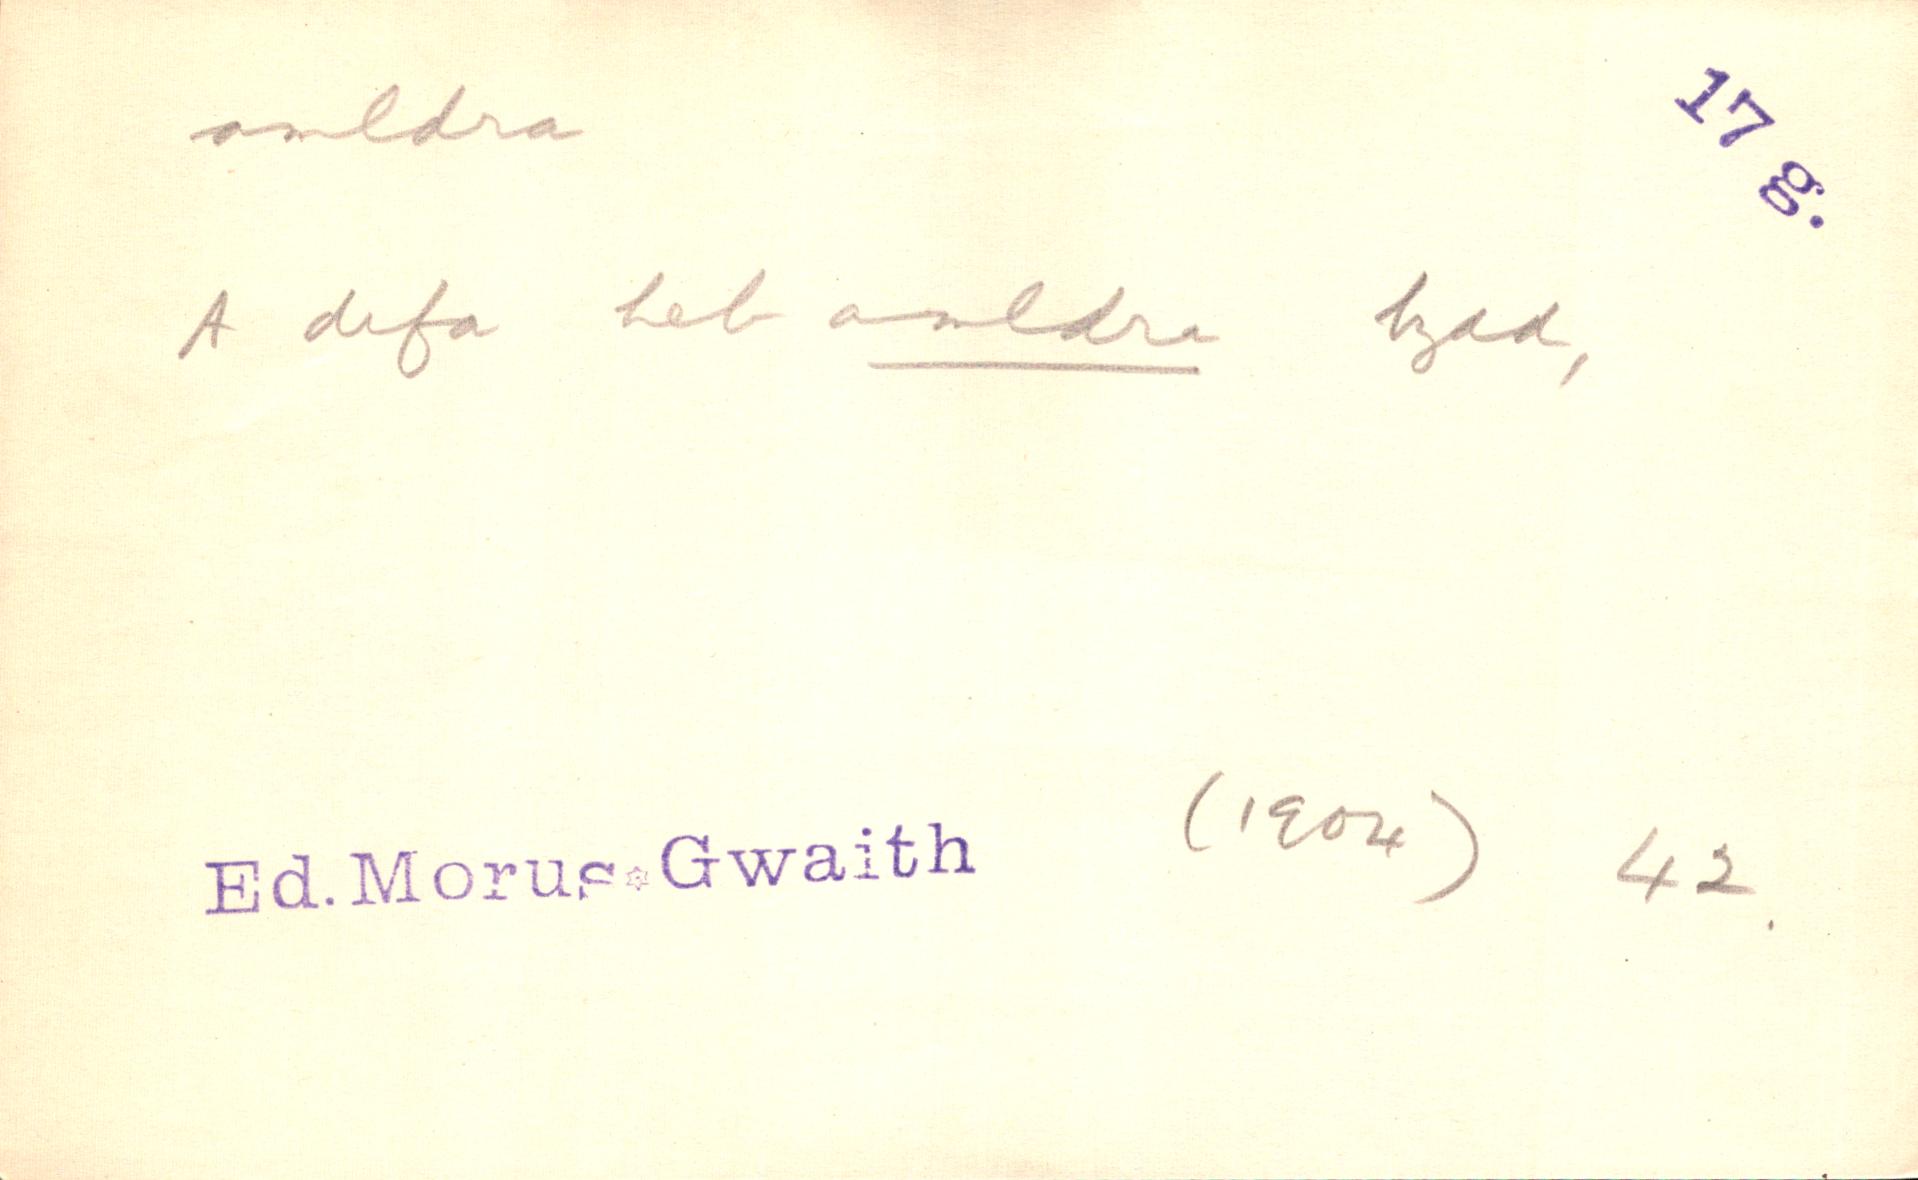 amldra
17 g.
A drefa heb amldra bydd,
Ed. Morus: Gwaith (1904) 42.